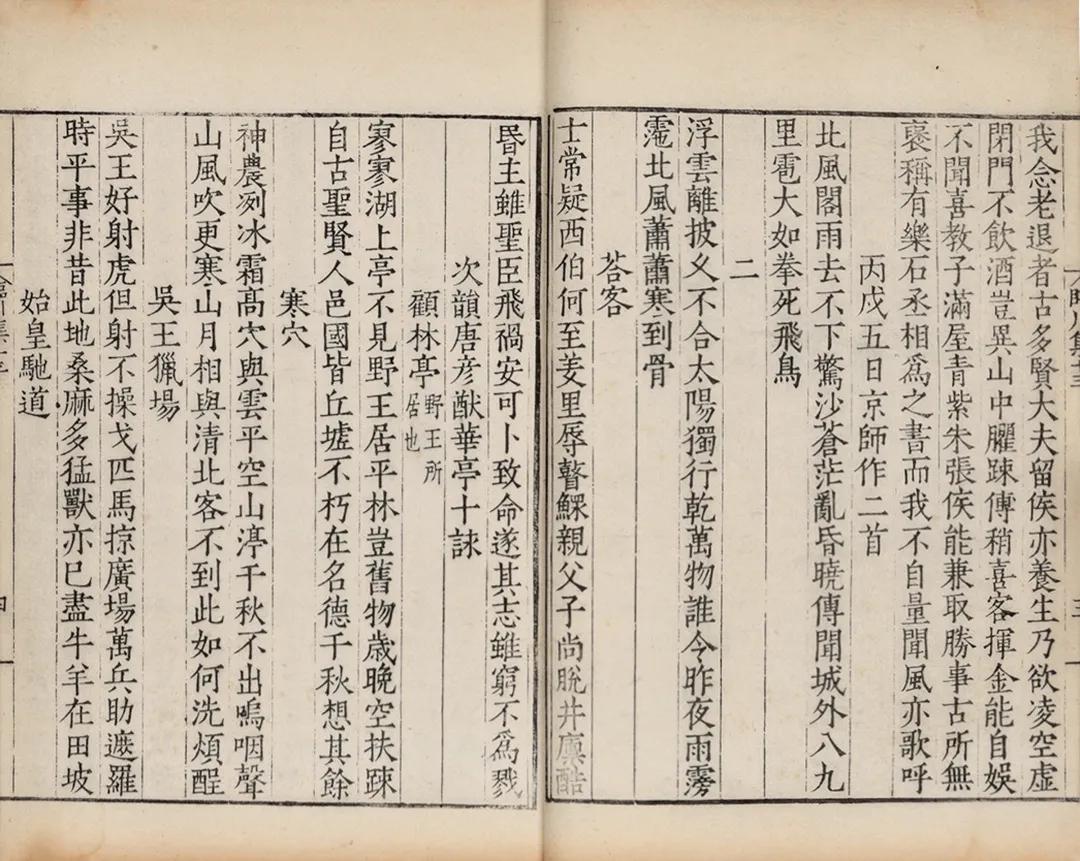 我念老退者古多賢大夫留侯亦養生乃欲凌空虚
閉門不飲酒豈異山中臞踈傅稍喜客揮金能自娛
不聞喜教子滿屋青紫朱張侯能兼取勝事古所無
褒稱有樂石丞相爲之書而我不自量聞風亦歌呼
丙戌五日京師作二首
北風閣雨去不下驚沙蒼茫亂昏曉傳聞城外八九
里雹大如拳死飛鳥
二
浮雲離披久不合太陽獨行乾萬物誰令昨夜雨霶
霮北風蕭蕭寒到骨
荅客
士常疑西伯何至羑里辱瞽鰥親父子尚脫井廩酷
昬主雖聖臣飛禍安可卜致命遂其志雖窮不爲戮
次韻唐彦猷華亭十詠
顧林亭野王所居也
寥寥湖上亭不見野王居平林豈舊物歳晚空扶踈
自古聖賢人邑國皆丘墟不朽在名德千秋想其餘
寒穴
神農冽冰霜高穴與雲平空山渟千秋不出嗚咽聲
山風吹更寒山月相與清北客不到此如何洗煩酲
吳王獵場
吳王好射虎但射不操戈匹馬掠廣場萬兵助遮羅
時平事非昔此地桑麻多猛獸亦已盡牛羊在田坡
始皇馳道
四